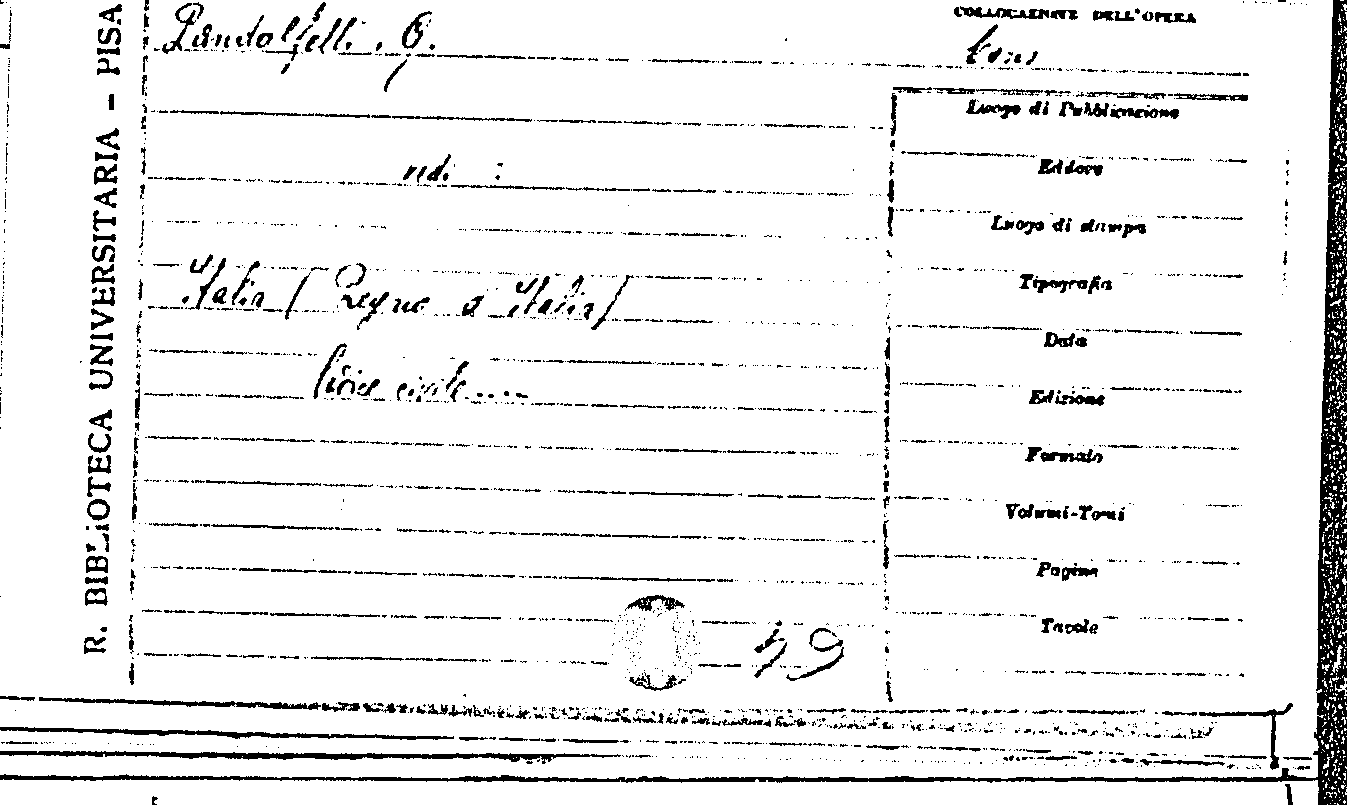 R. BIBLIOTECA UNIVERSITARIA - PISA
COLLOCAZIONE DELL'OPERA
Pandolfelli. G.
Luogo di Pubblicazione
vedi :
Editore
Luogo di stampa
Italia (Regno d'Italia)
Tipografia
Data
civile....
Edizione
Formato
Volumi-Tomi
Pagine
Tavole